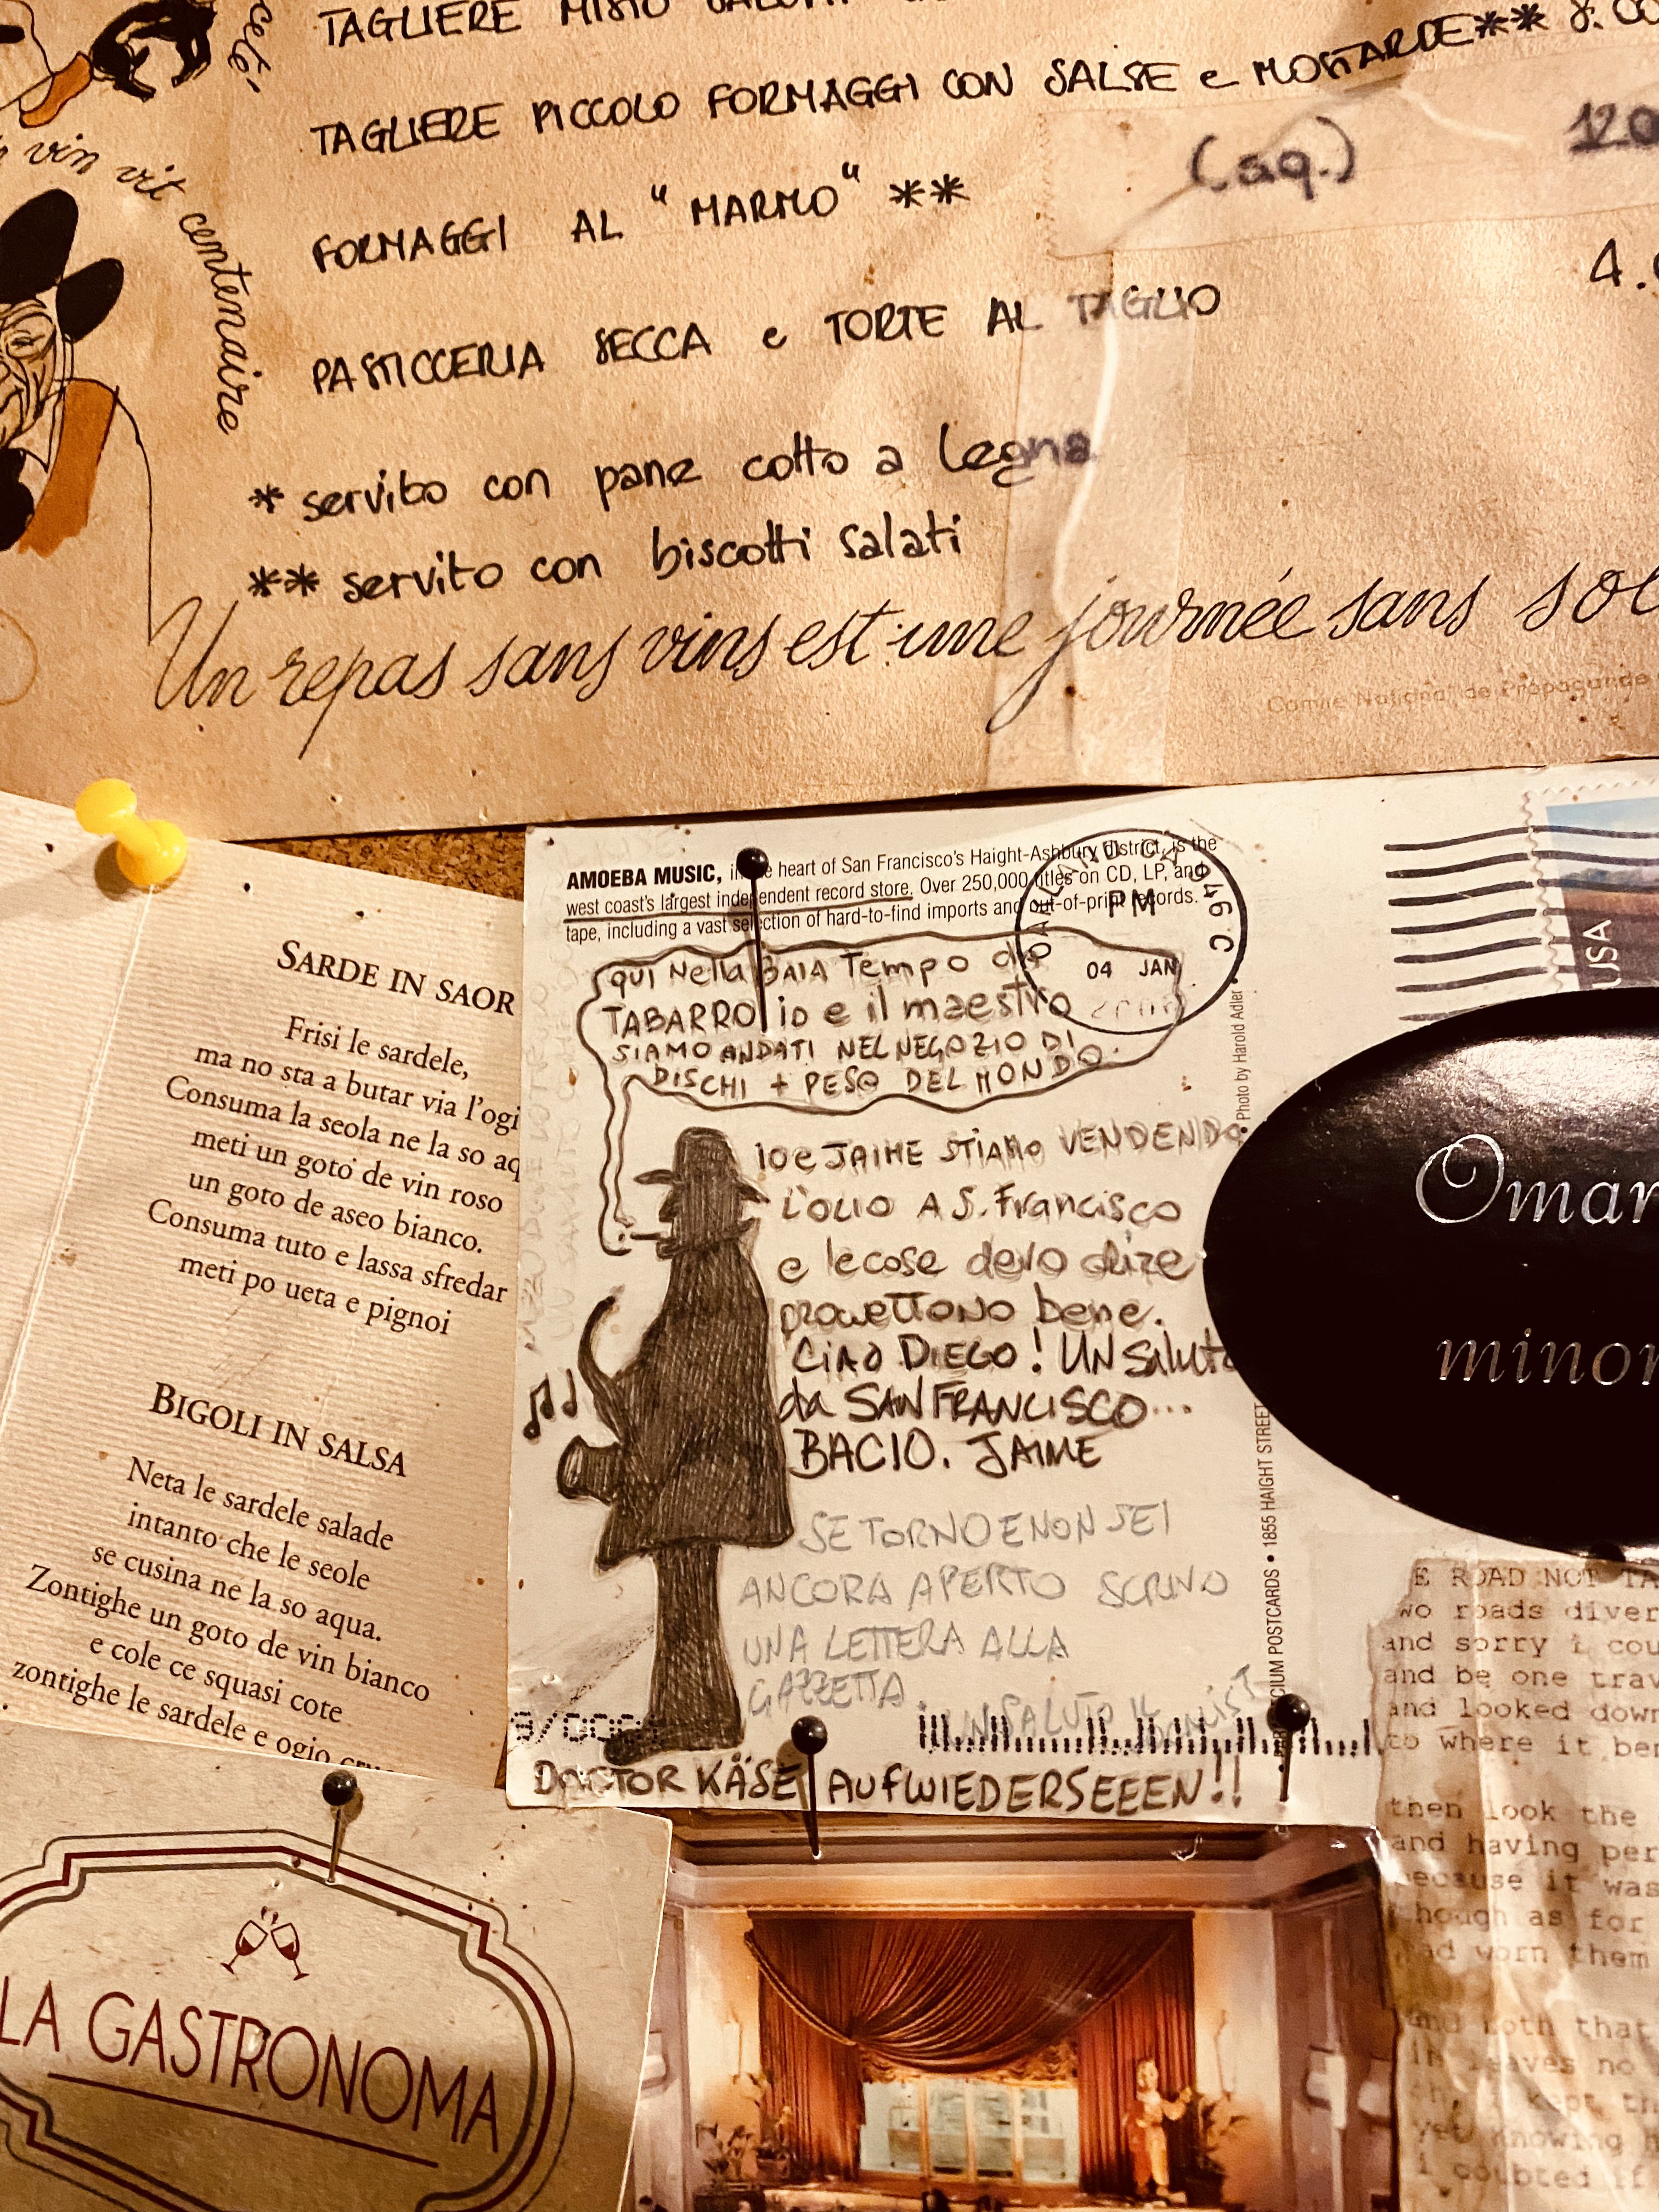 TAGLIERE MISTO
TAGLIERE PICCOLO FORMAGGI CON SALSE e MOSTARDE** 8.
(sq.) 120
FORMAGGI AL "MARMO" **
4.
PASTICCERIA SECCA e TORTE AL TAGLIO
* servito con pane cotto a legna
** servito con biscotti salati
vin vit centenaire
Un repas sans vins est une journée sans
Comité National de Propagande
SARDE IN SAOR
Frisi le sardele,
ma no sta a butar via l'ogi
Consuma la seola ne la so aq
meti un goto de vin roso
un goto de aseo bianco.
Consuma tuto e lassa sfredar
meti po ueta e pignoi
BIGOLI IN SALSA
Neta le sardele salade
intanto che le seole
se cusina ne la so aqua.
Zontighe un goto de vin bianco
e cole ce squasi cote
zontighe le sardele e ogio
LA GASTRONOMA
AMOEBA MUSIC, in the heart of San Francisco's Haight-Ashbury district, is the
west coast's largest independent record store. Over 250,000 titles on CD, LP, and
tape, including a vast selection of hard-to-find imports and out-of-print records.
OAKLAND CA 946
PM
04 JAN
USA
QUI Nella BAIA Tempo da
TABARRO io e il maestro
SIAMO ANDATI NEL NEGOZIO DI
DISCHI + PESO DEL MONDO.
io e JAIME STIAMO VENDENDO
L'OLIO A S. Francisco
e le cose devo dire
promettono bene.
CIAO DIEGO! UN Saluto
da SAN FRANCISCO...
BACIO. JAIME
SE TORNO E NON SEI
ANCORA APERTO SCRIVO
UNA LETTERA ALLA
GAZZETTA.
UN SALUTO IL
DOCTOR KÄSE AUFWIEDERSEEEN!!
Photo by Harold Adler •
POSTCARDS • 1855 HAIGHT STREET
Omar
minor
E ROAD NOT TA
wo roads diver
and sorry i cou
and be one trav
and looked down
to where it ben
then look the
and having per
because it was
though as for
had worn them
and both that
in leaves no
kept th
yet knowing h
i doubted if